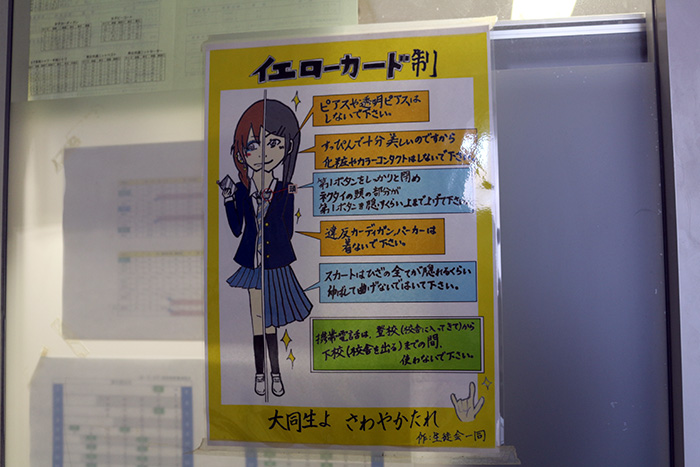 イエローカード制
ピアスや透明ピアスは
しないで下さい。
すっぴんで十分美しいのですから
化粧やカラーコンタクトはしないで下さい。
第1ボタンをしっかりと閉め
ネクタイの頭の部分が
第1ボタンを隠すくらい上まで上げて下さい。
違反カーディガン、パーカーは
着ないで下さい。
スカートはひざの全てが隠れるくらい
伸ばして曲げないではいて下さい。
携帯電話は、登校(校舎に入ってきて)から
下校(校舎を出る)までの間、
使わないで下さい。
大同生よ さわやかたれ
作:生徒会一同